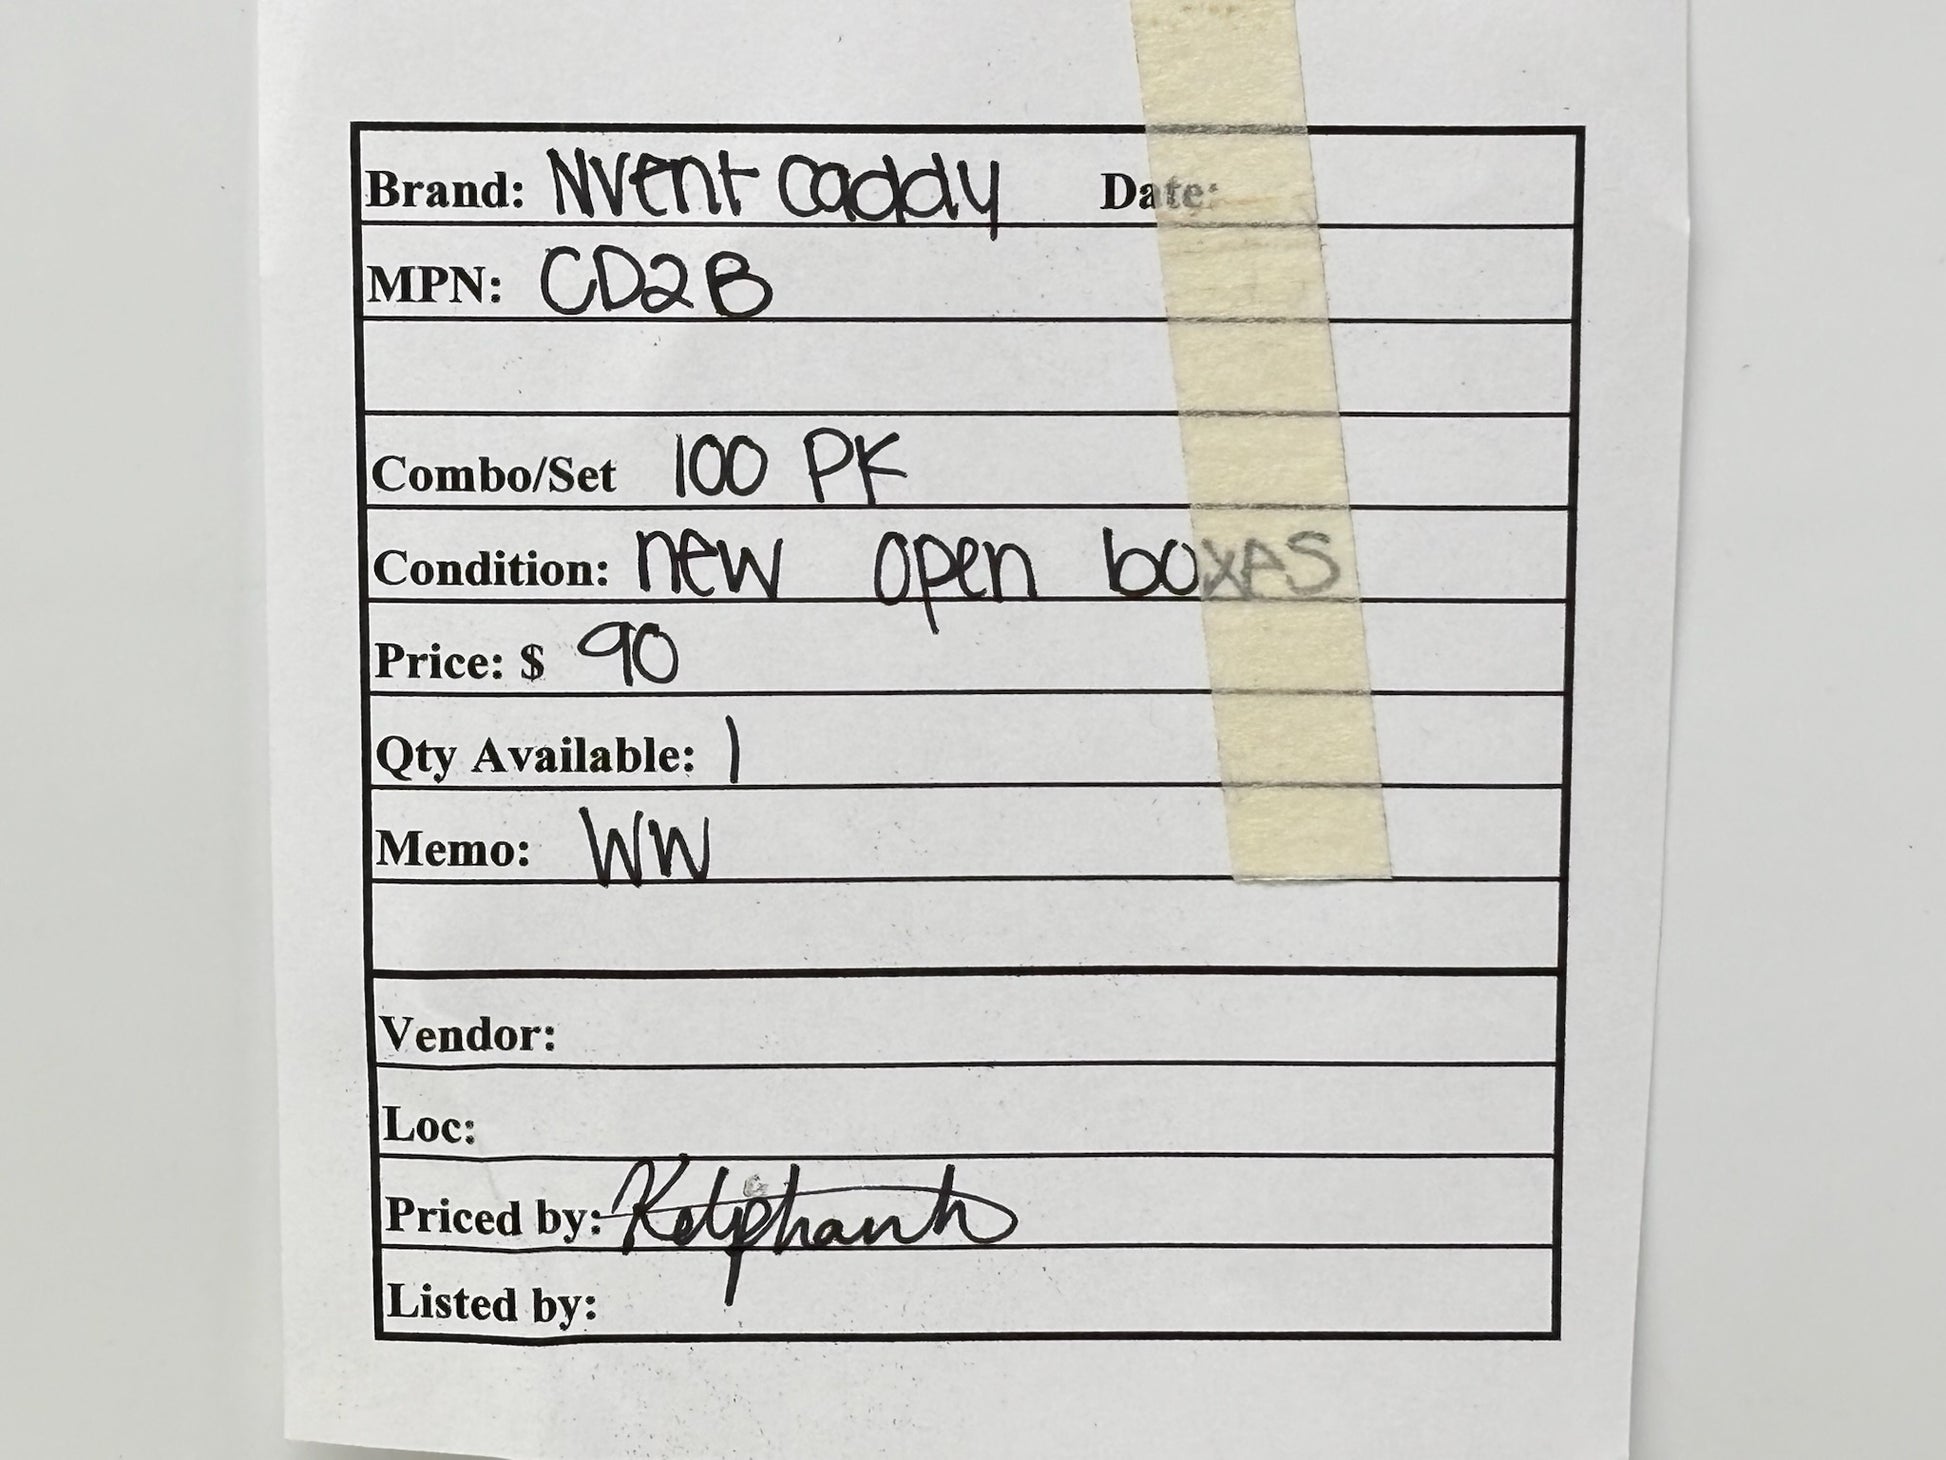 Brand: Nvent caddy Date:
MPN: CD2B
Combo/Set 100 PK
Condition: new open boxes
Price: $ 90
Qty Available: 1
Memo: WW
Vendor:
Loc:
Priced by:
Listed by: